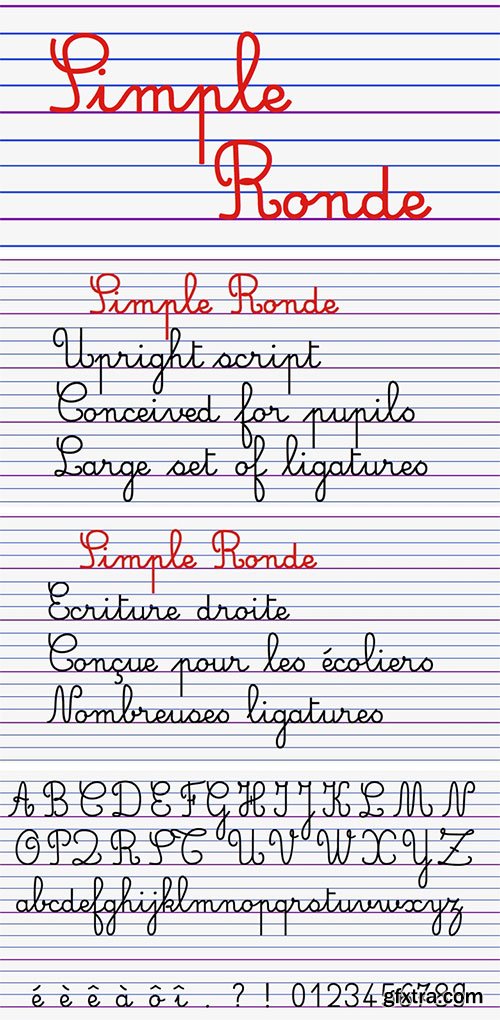 Simple
Ronde
Simple Ronde
Upright script
Conceived for pupils
Large set of ligatures
Simple Ronde
Ecriture droite
Conçue pour les écoliers
Nombreuses ligatures
A B C D E F G H I J K L M N
O P Q R S T U V W X Y Z
abcdefghijklmnopqrstuvwxyz
é è ê à ô î . ? ! 0123456789
gfxtra.com